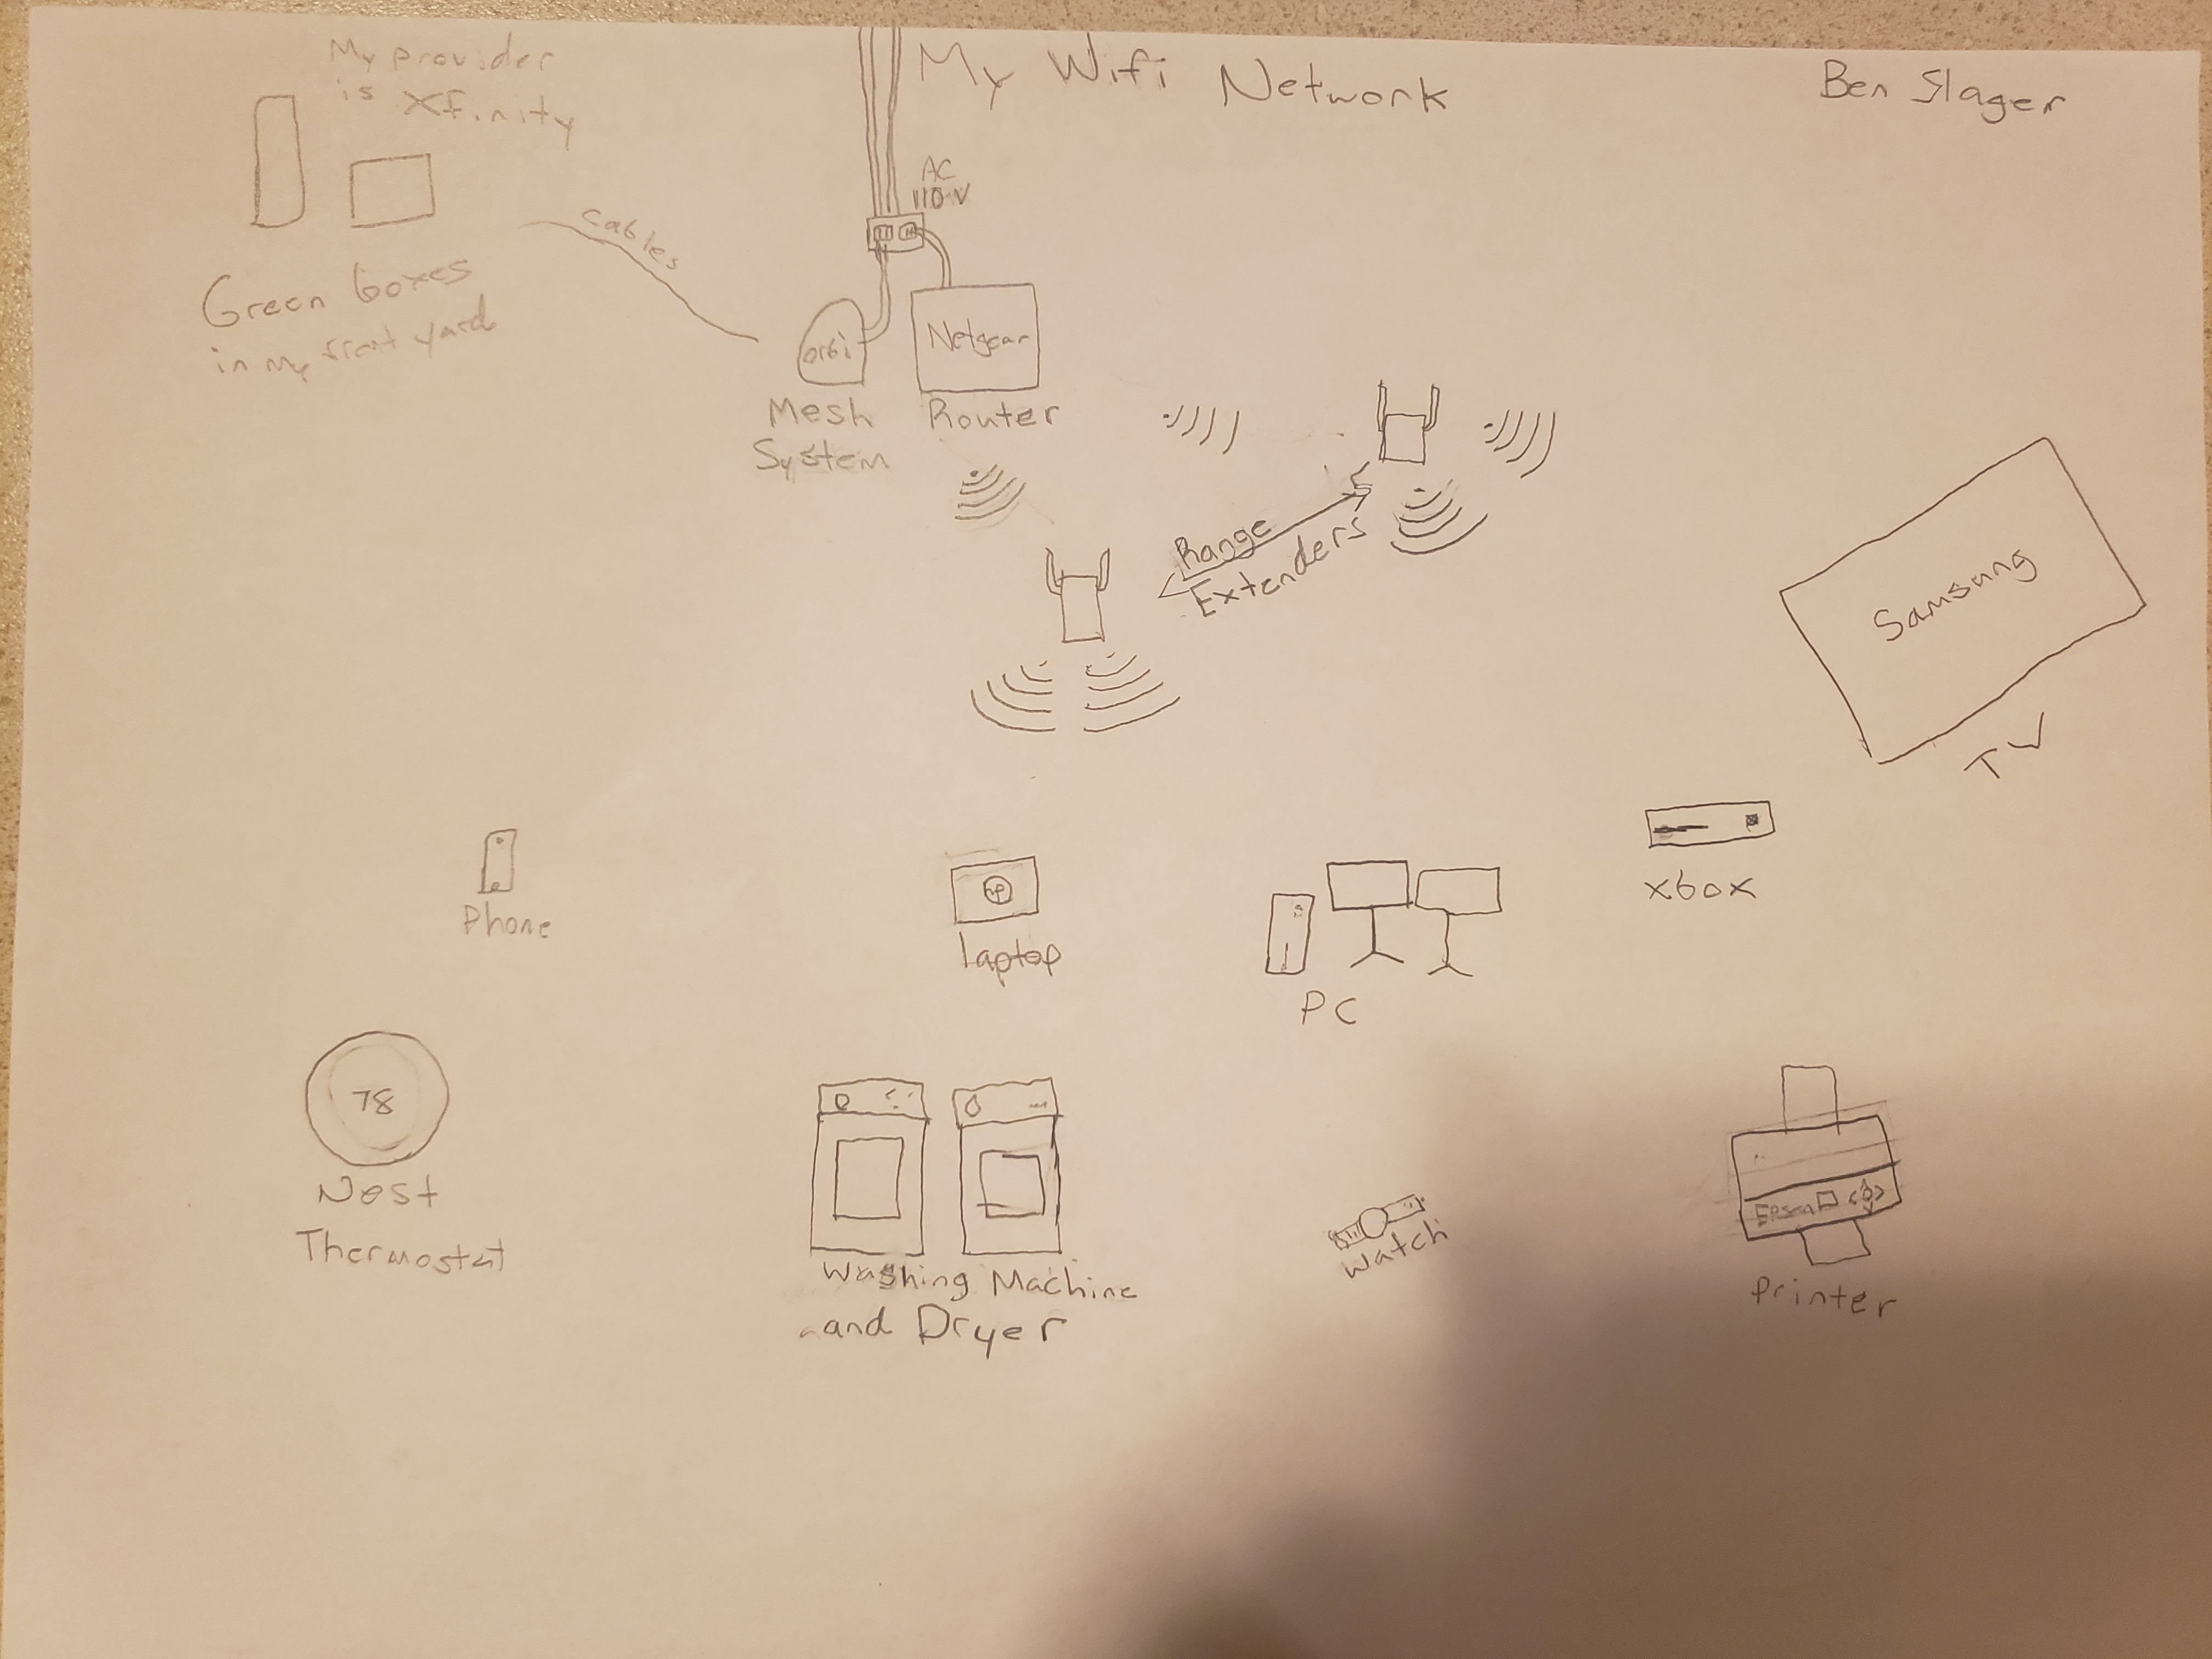 My Wifi Network
Ben Slager
My provider
is Xfinity
Green boxes
in my front yard
Cables
AC
110V
orbi
Mesh
System
Netgear
Router
Range
Extenders
Samsung
TV
Phone
hp
laptop
PC
xbox
78
Nest
Thermostat
Washing Machine
and Dryer
Watch
Epson
Printer